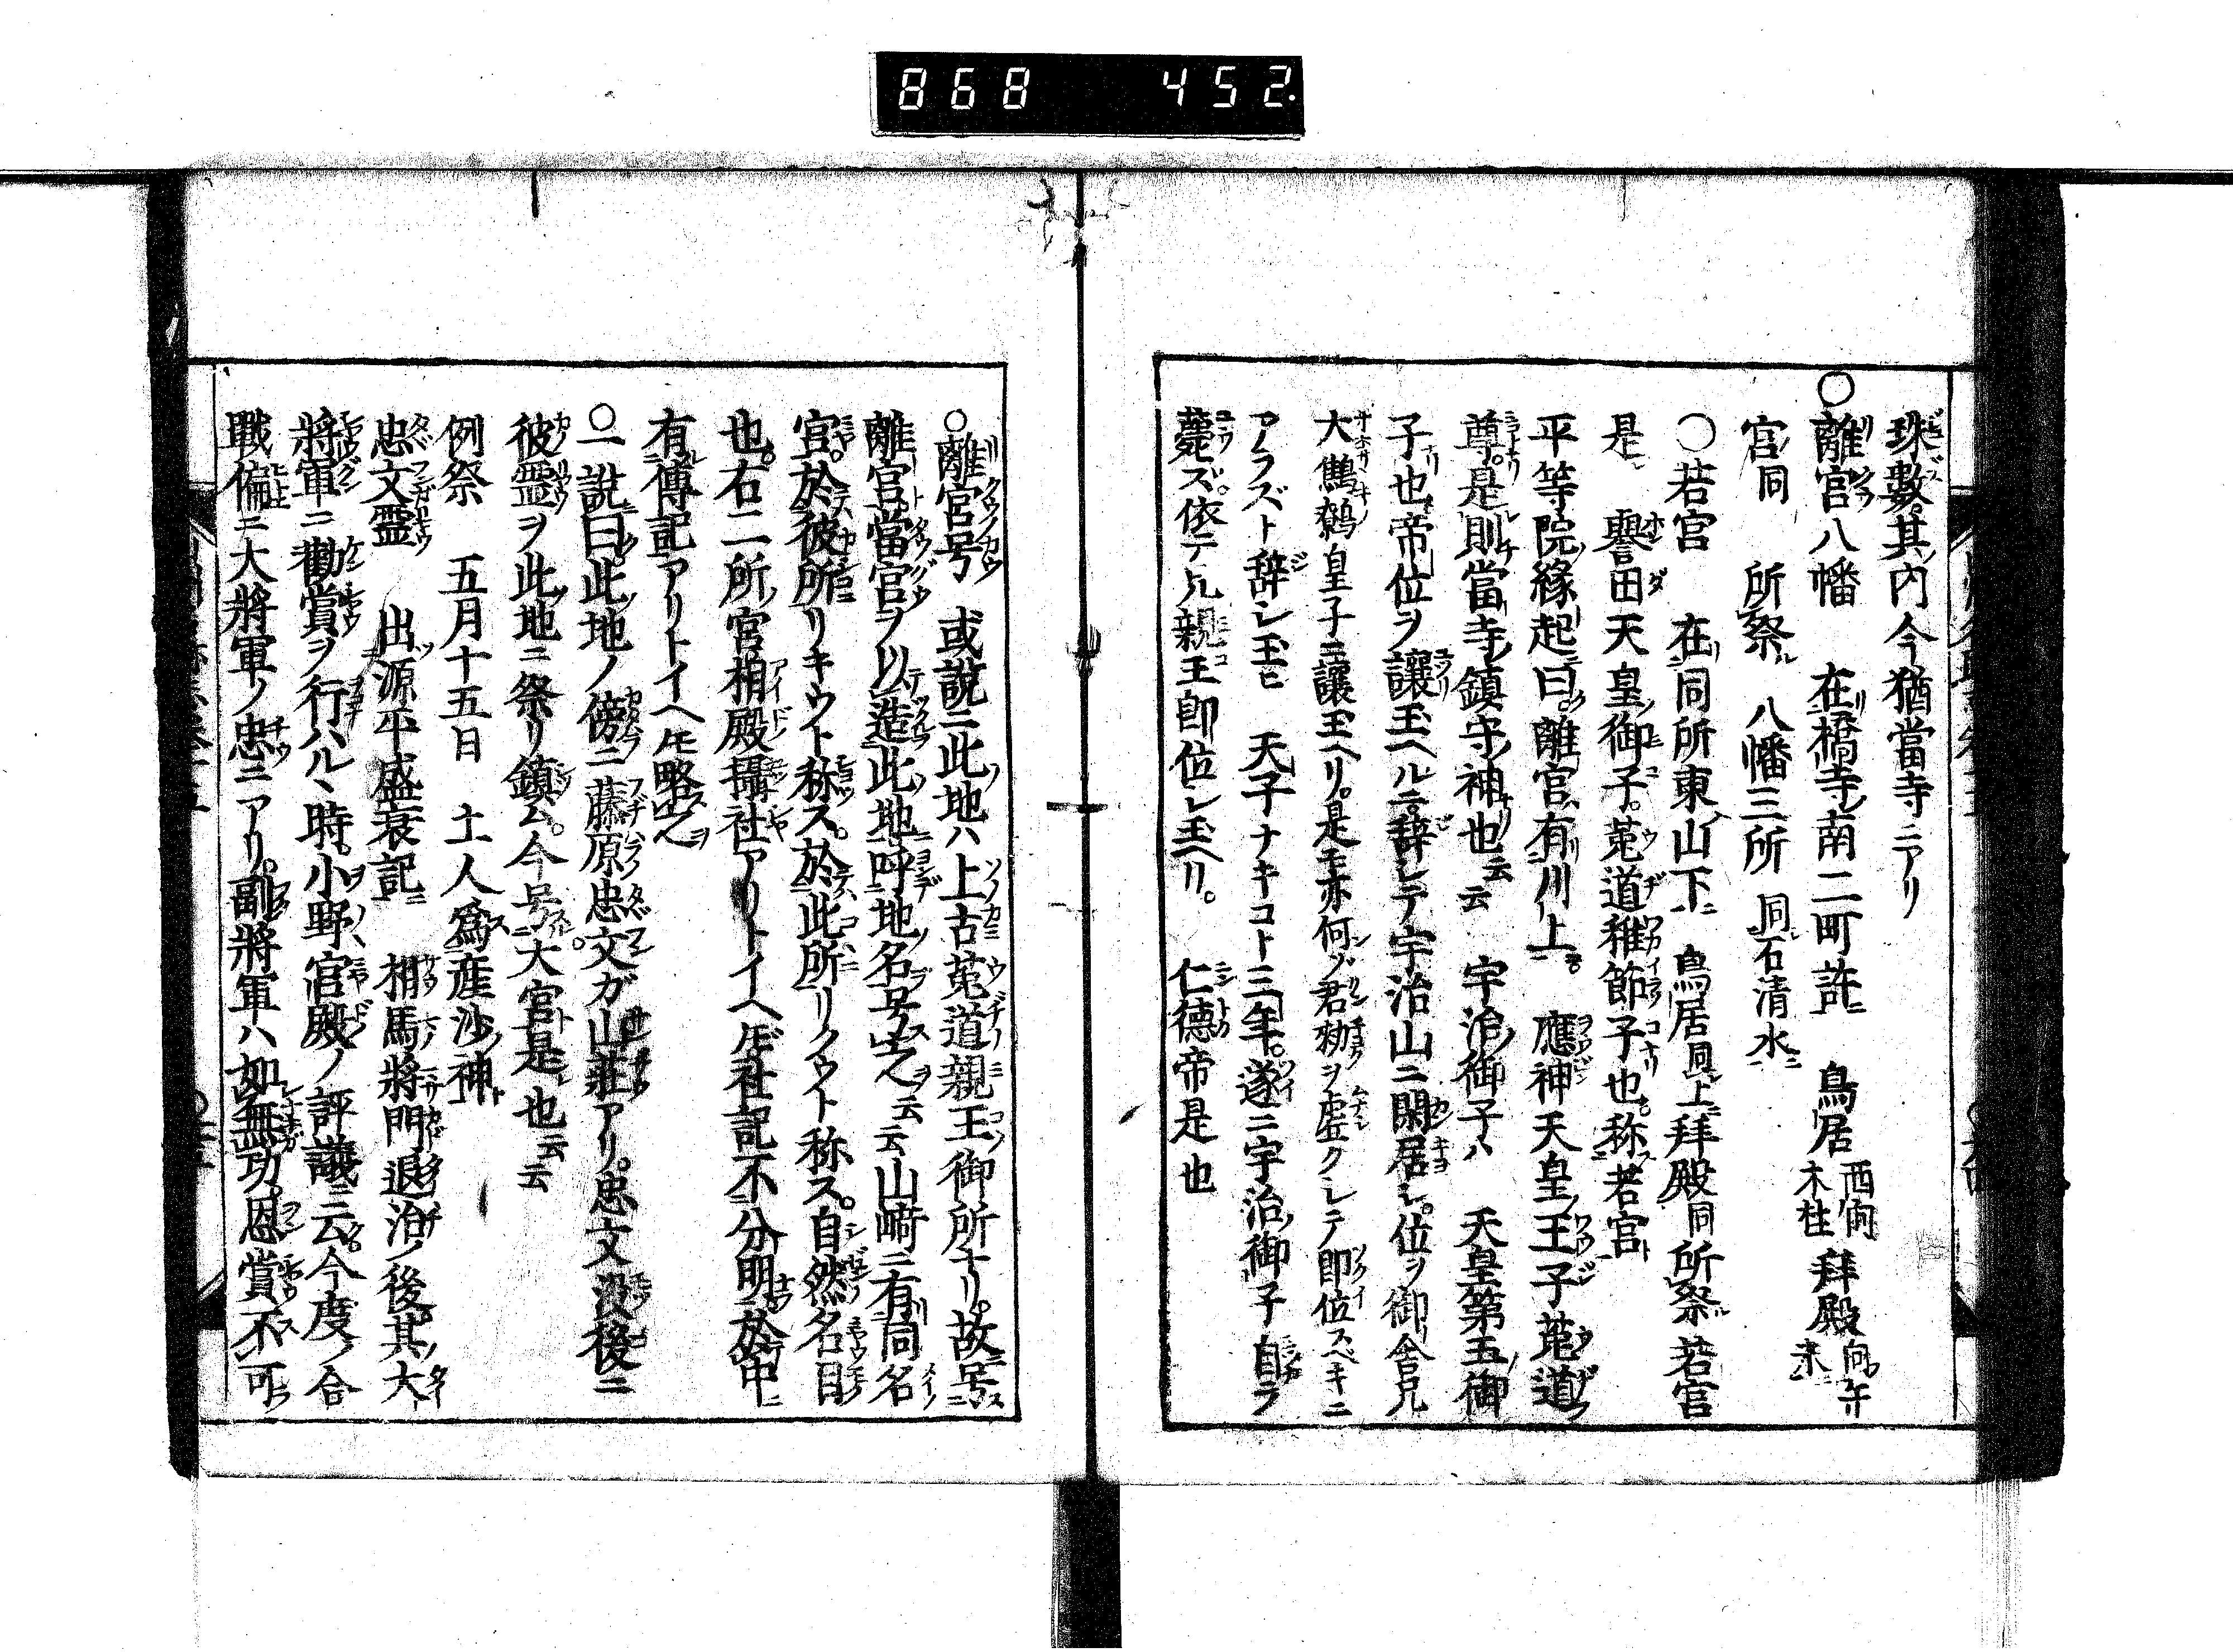 868 452
珠數其内今猶當寺ニアリ
○離宮八幡 在橋寺南二町許 鳥居西向木柱 拜殿向午未
宮同 所祭 八幡三所 同石清水
○若宮 在同所東山下 鳥居同上拜殿同所祭 若宮
是 譽田天皇御子。菟道稚節子也。称若宮
平等院縁起曰。離宮有川上。 應神天皇王子菟道
尊。是則當寺鎮守神也云云 宇治御子ハ 天皇第五御
子也帝位ヲ讓玉ヘルニ。辞シテ宇治山ニ閑居シ。位ヲ御舎兄
大鷦鷯皇子ニ讓玉ヘリ。是モ亦何ゾ君勅ヲ虚クシテ即位スベキニ
アラズト辞シ玉ヒ 天子ナキコト三年。遂ニ宇治御子自ラ
薨ズ。依テ兄親王即位シ玉ヘリ。 仁德帝是也
○離宮号 或說ニ此地ハ上古菟道親王御所ナリ。故号
離宮。當宮ヲ以造此地呼地名号之云云山﨑ニ有同名
宮。於彼所リキウト称ス。於此所リクウト称ス。自然名目
也。右二所宮相殿攝社アリトイヘドモ社記不分明。於中
有傳記アリトイヘドモ略之
○一說曰。此地ノ傍ニ藤原忠文ガ山莊アリ。忠文沒後ニ
彼霊ヲ此地ニ祭リ鎮ム。今号大宮是也云云
例祭 五月十五日 土人爲産沙神
忠文霊 出源平盛衰記 相馬將門退治ノ後其大
將軍ニ勸賞ヲ行ハルヽ時。小野宮殿ノ評議ニ云。今度ノ合
戰偏ニ大將軍ノ忠ニアリ。副將軍ハ如無功。恩賞不可